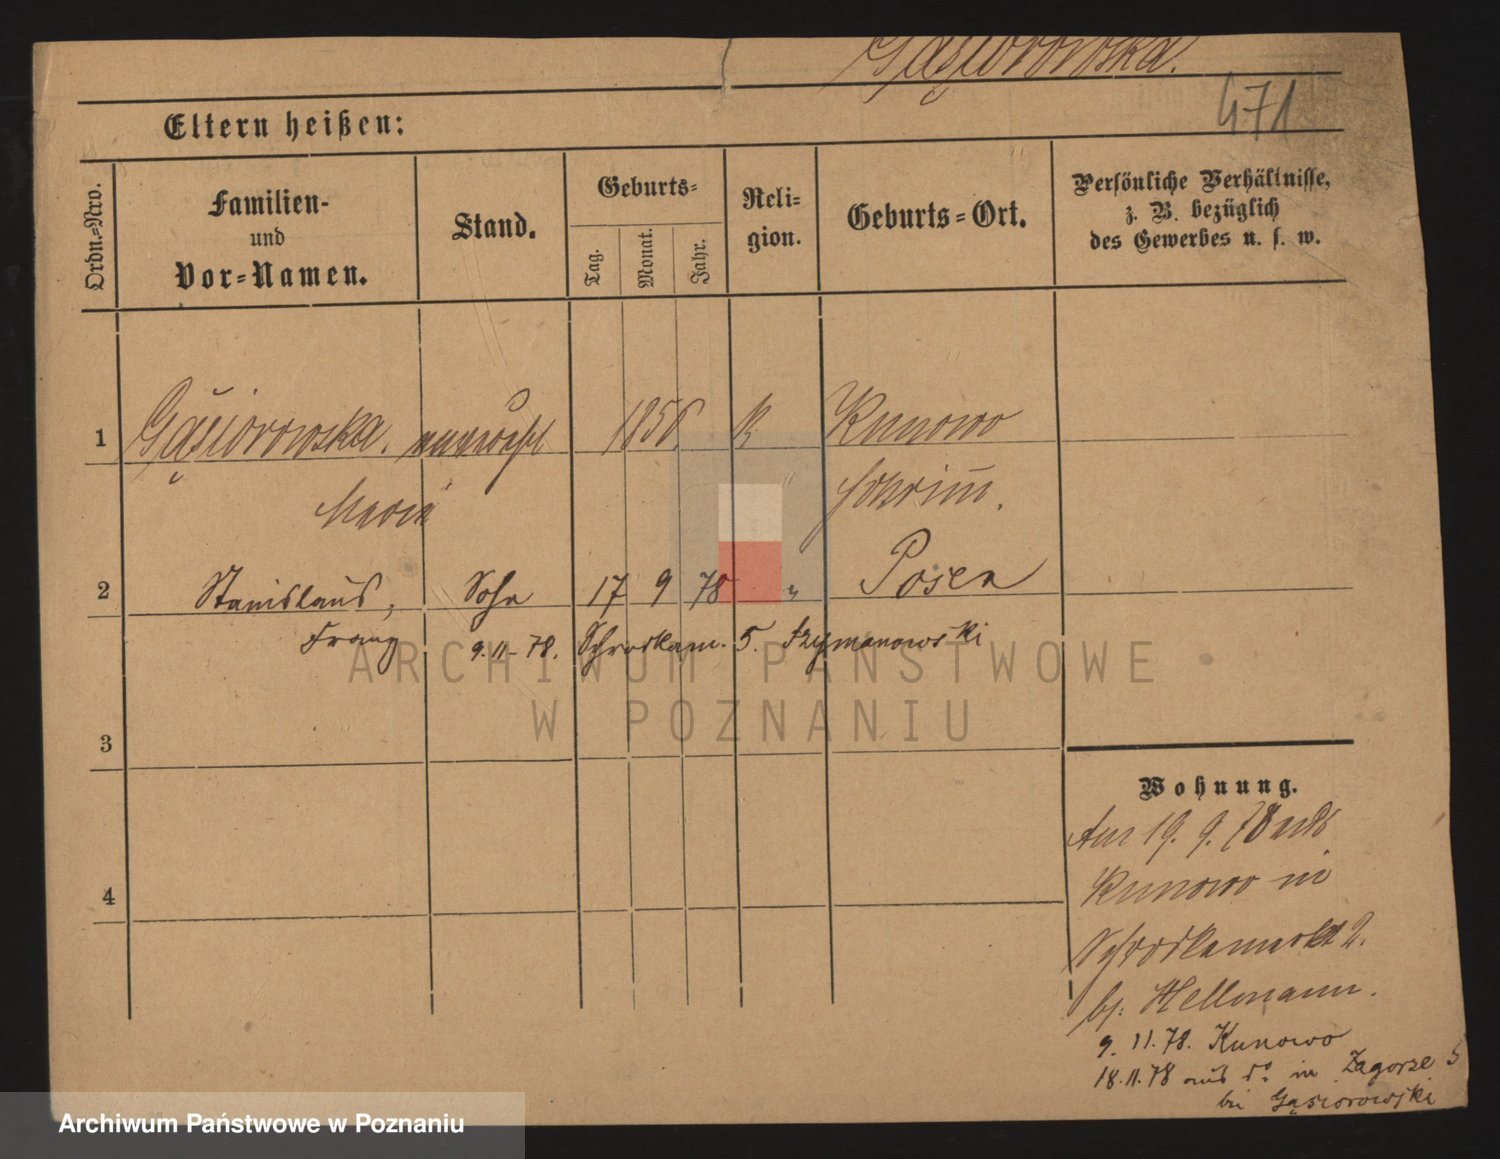 Gąsiorowska.
471
Eltern heißen:
Ordn.-Nro.
Familien-
und
Vor-Namen.
Stand.
Geburts-
Tag.
Monat.
Jahr.
Reli-
gion.
Geburts-Ort.
Persönliche Verhältnisse,
z. B. bezüglich
des Gewerbes u. s. w.
1 Gąsiorowska. unverehl 1856 k Kunowo
Maria Schrimm.
2 Stanislaus, Sohn 17 9 78 " Posen
Franz 9.11.78. Schrodkam. 5. Szymanowski
3
4
Wohnung.
Am 19. 9. 78 aus
Kunowo in
Schrodkamarkt 2.
bei Hellmann.
9. 11. 78. Kunowo
18.11.78 aus do in Zagorze 5
bei Gąsiorowski
ARCHIWUM PAŃSTWOWE
W POZNANIU
Archiwum Państwowe w Poznaniu